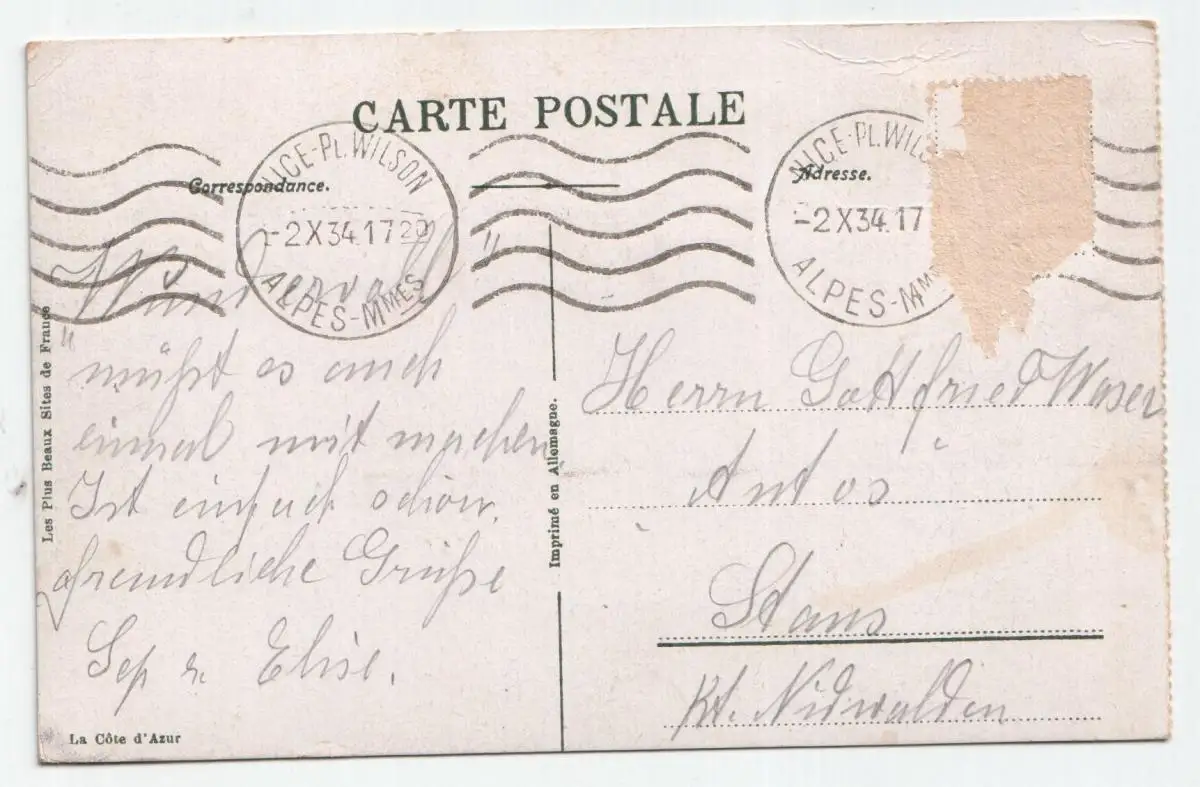 CARTE POSTALE
Correspondance.
Adresse.
NICE-PL. WILSON
-2 X 34. 17 20
ALPES-MMES
NICE-PL. WILS
-2 X 34. 17
ALPES-MM
"Wundervoll"
müßt es auch
einmal mit machen
Ist einfach schön.
freundliche Grüße
Sep u. Elise.
Herrn Gottfried Waser
Autos
Stans
Kt. Nidwalden
Les Plus Beaux Sites de France
Imprimé en Allemagne.
La Côte d'Azur